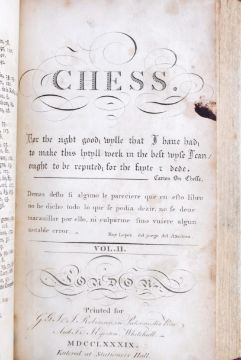 CHESS.
For the right good wylle that I haue had,
to make this lytyll werk in the best wyse I can,
ought to be reputed, for the fayte & dede.
Caxton On Chesse.
Demas desto si alguno le pareciere que en esto libro
no he dicho todo lo que se podia dezir, no se deue
marauillar por ello, ni culparme sino vuiere algun
notable error.
Ruy Lopez
VOL. II.
LONDON,
Printed for
G. G. J. & J. Robinson, Paternoster Row,
And T. & J. Egerton, Whitehall.
MDCCLXXXIX.
Entered at Stationers Hall.